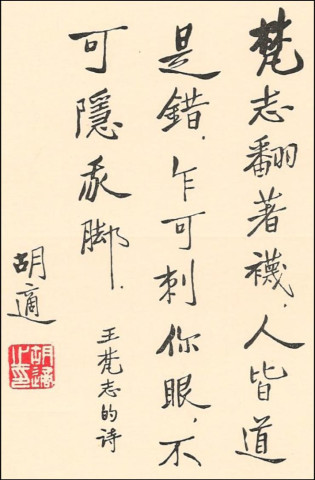 梵志翻著襪，人皆道
是錯，乍可刺你眼，不
可隱我脚．
王梵志的詩
胡適
胡適之印